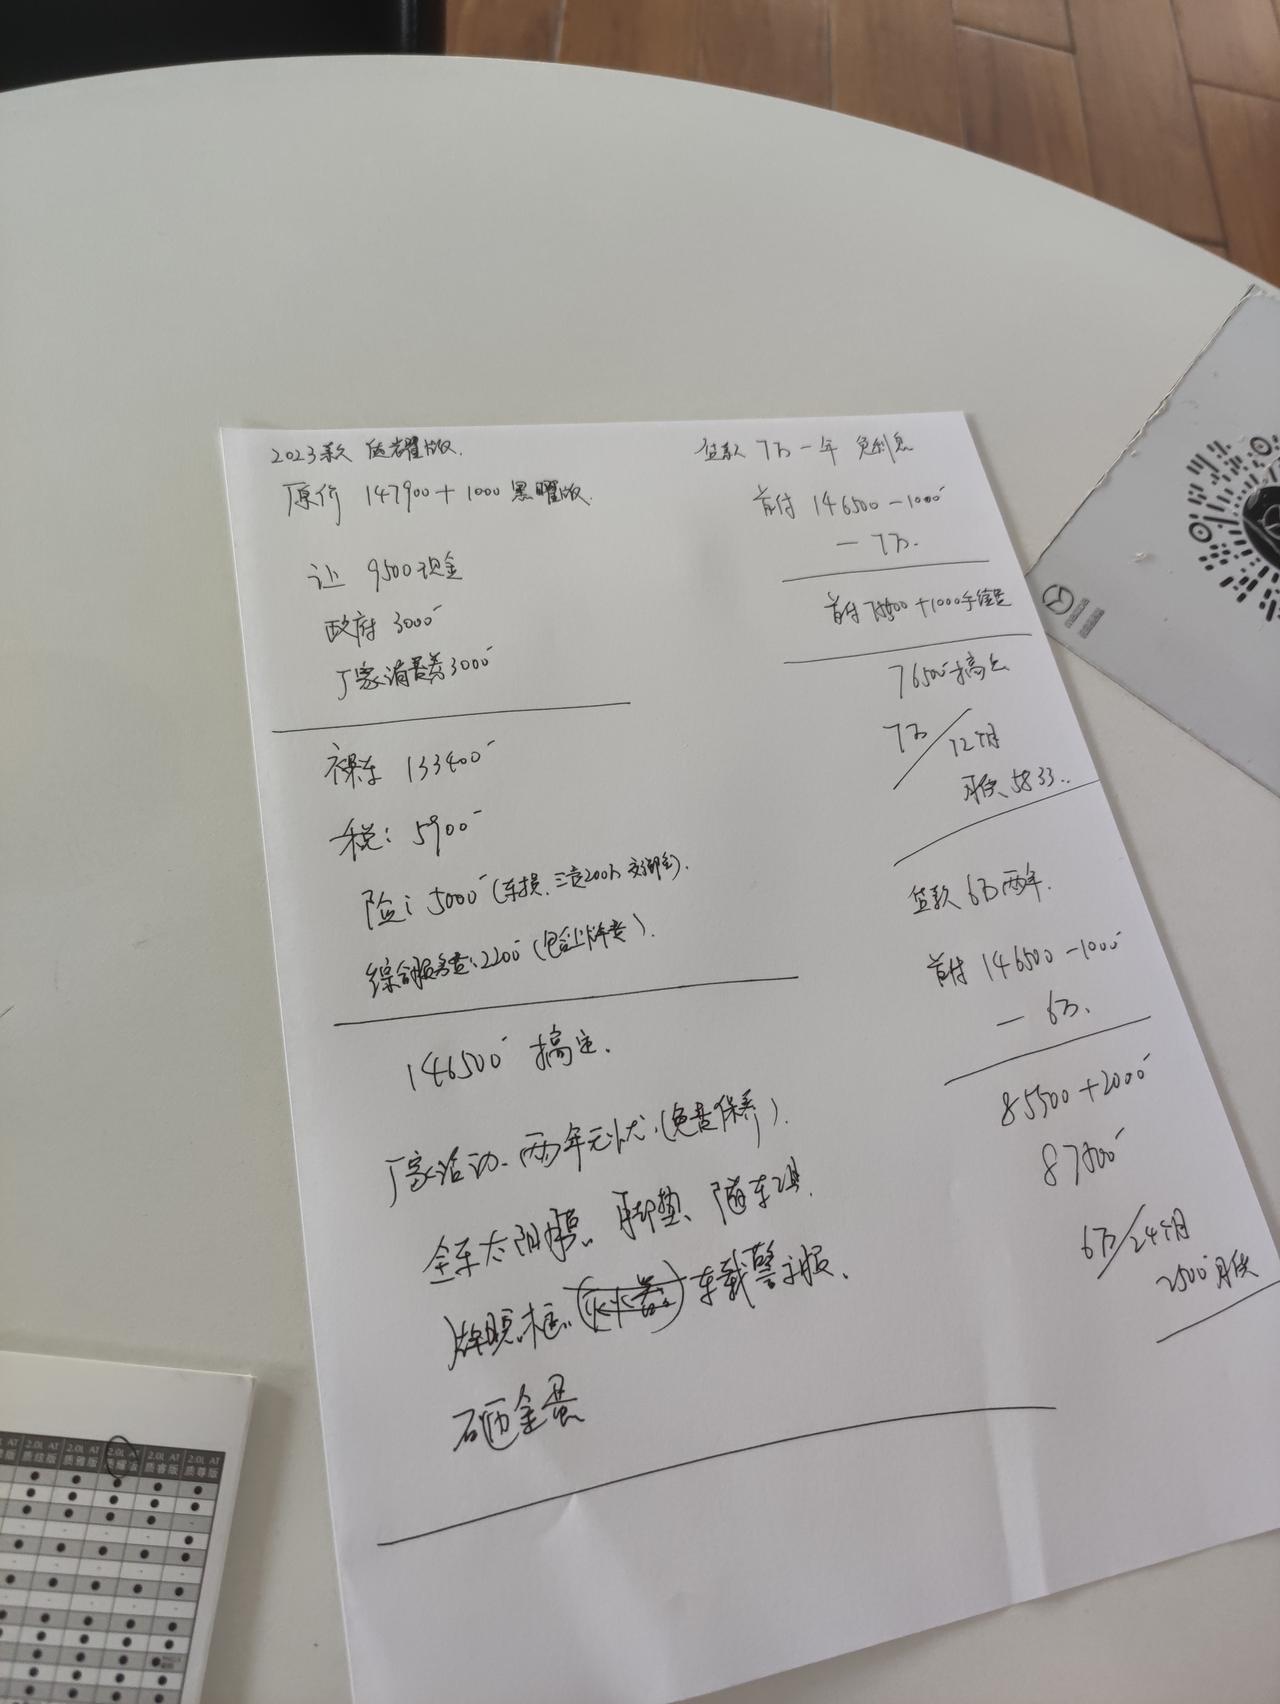 2023款 质耀版.
原价 147900+1000 黑曜版.
让 9500 现金
政府 3000
厂家消费券3000
裸车 133400
税: 5900
险: 5000 (车损. 三责200万 交强险).
综合服务费:2200 (包含上牌费).
146500 搞定.
厂家活动. 两年无忧. (免费保养).
全车太阳膜. 脚垫. 随车工具.
牌照框. 灭火器 车载警示服.
砸金蛋
贷款 7万 一年 免利息
首付 146500-1000
-7万.
首付 75500+1000手续费
76500搞定
7万/12个月
月供5833..
贷款 6万 两年.
首付 146500-1000
-6万.
85500+2000
87500
6万/24个月
2500 月供
2.0L AT 2.0L AT 2.0L AT 2.0L AT 2.0L AT
质炫版 质雅版 质耀版 质睿版 质尊版